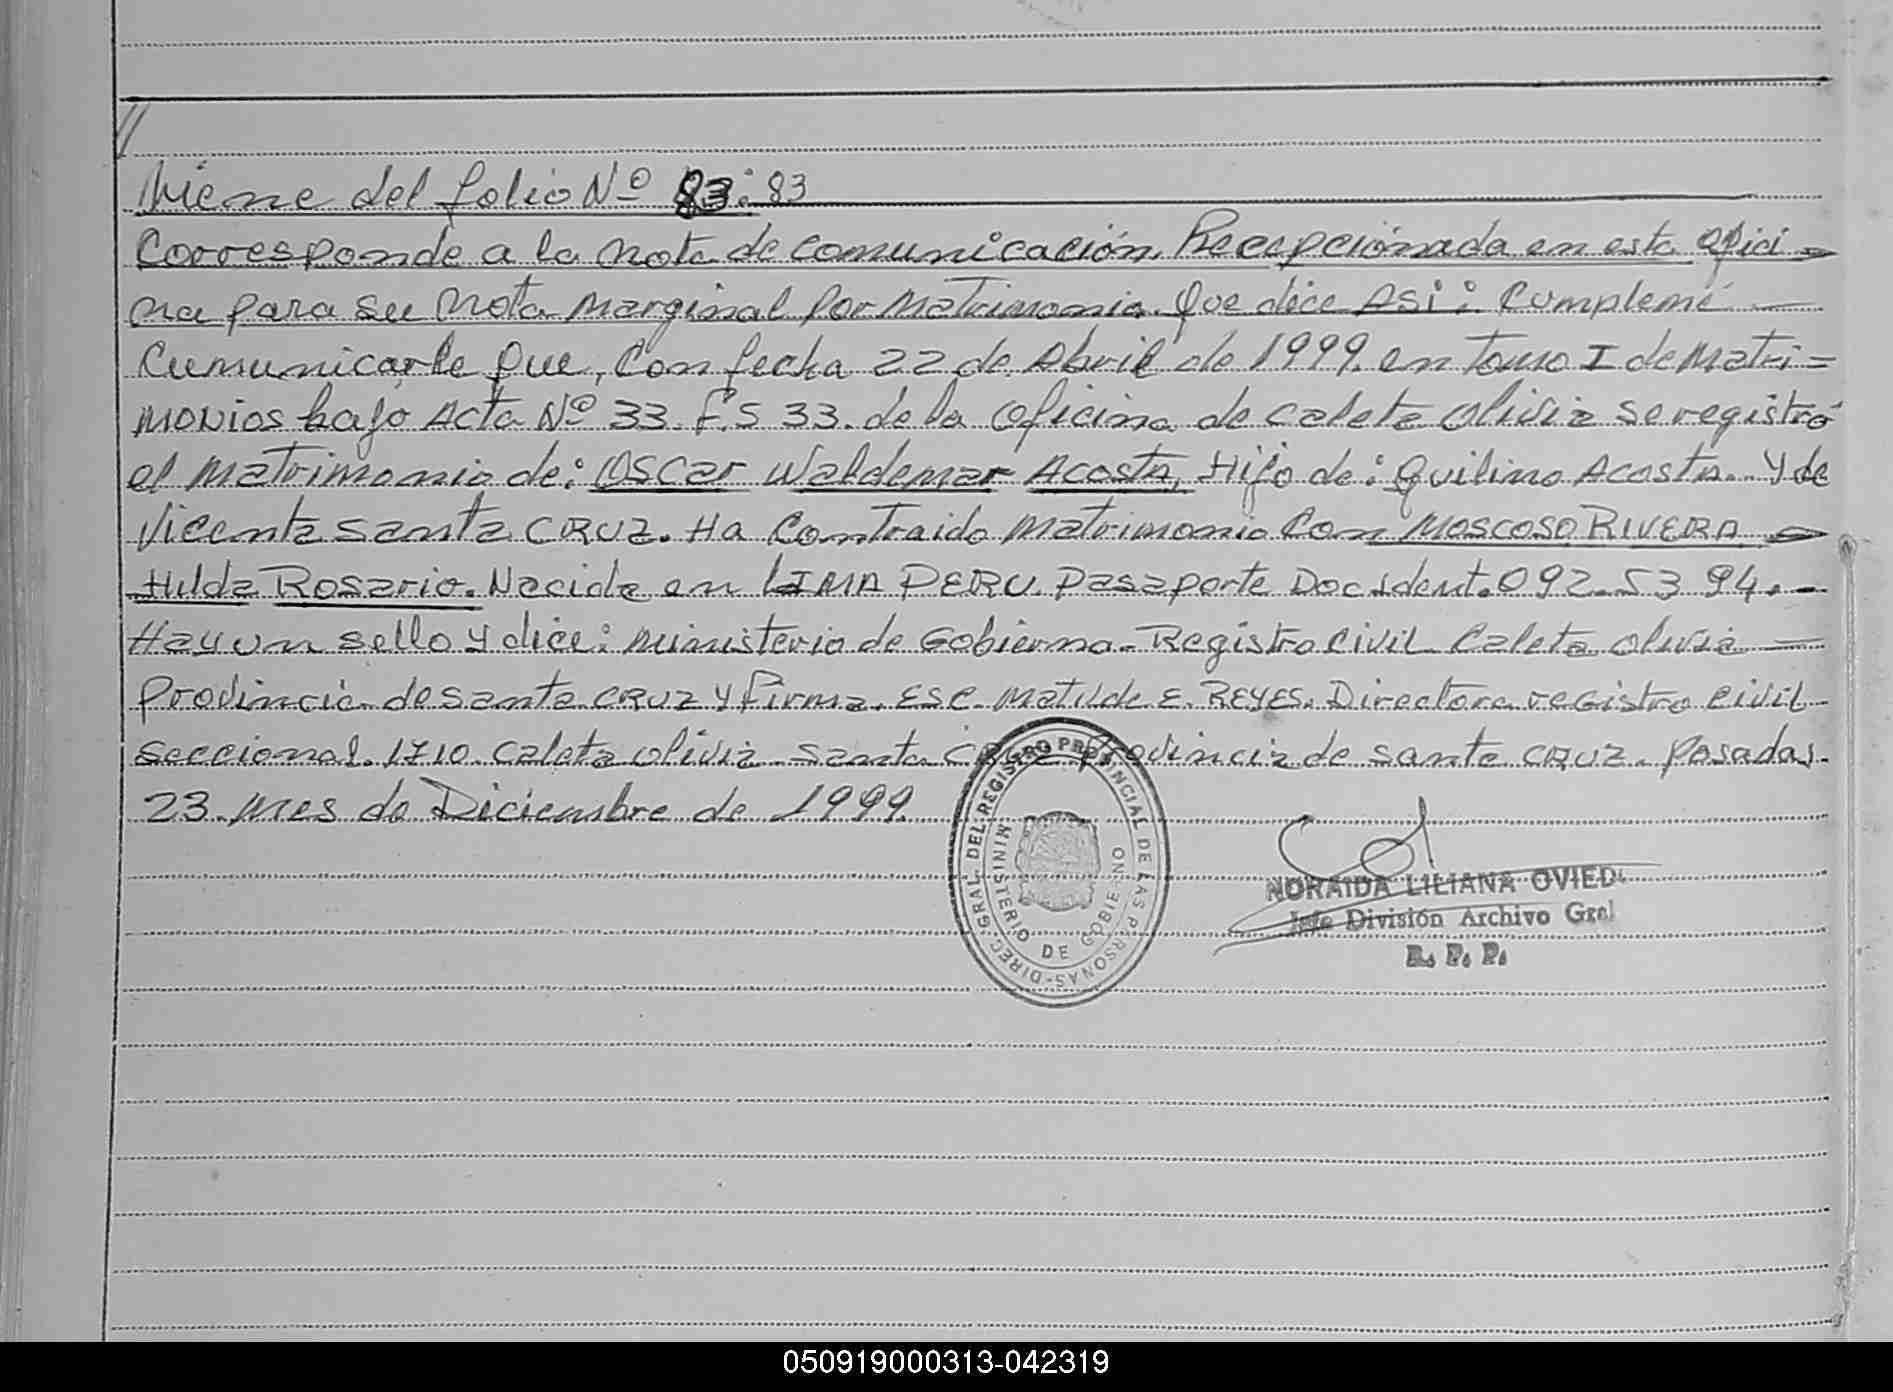 Viene del folio Nº 83: 83
Corresponde a la Nota de comunicación, Recepcionada en esta ofici
na para su Nota Marginal por Matrimonio. Que dice ASi: Cumpleme
Cumunicarle Que, Con fecha 22 de Abril de 1999. en Tomo I de Matri=
monios bajo Acta Nº 33. F.S 33. de la oficina de Caleta Olivia se registró
el Matrimonio de: OSCar Waldemar Acosta, Hijo de: Quilino Acosta. Y de
Vicenta Santa CRUZ. Ha Contraido Matrimonio Con MOSCOSO RIVERA
Hilda Rosario. Nacida en LIMA PERU. Pasaporte Doc.Ident.092.53 94.-
Hay un sello y dice: Ministerio de Gobierno. Registro Civil Caleta Olivia
Provincia de Santa CRUZ y firma. ESC. Matilde E. REYES. Directora registro Civil
Seccional. 1710. Caleta Olivia. Santa Cruz Provincia de Santa CRUZ. Posadas.
23. Mes de Diciembre de 1999.
DIREC. GRAL. DEL REGISTRO PROVINCIAL DE LAS PERSONAS
MINISTERIO DE GOBIERNO
NORAIDA LILIANA OVIEDO
Jefe División Archivo Gral
R. P. P.
050919000313-042319